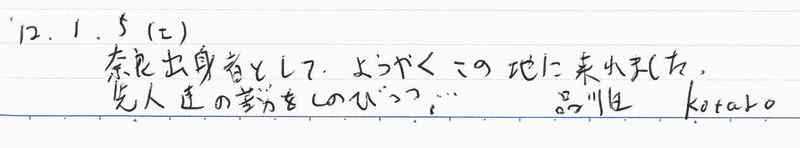 '12. 1. 5 (土)
奈良出身者として、ようやくこの地に来れました。
先人達の苦労をしのびつつ、… 品川住 Kotaro